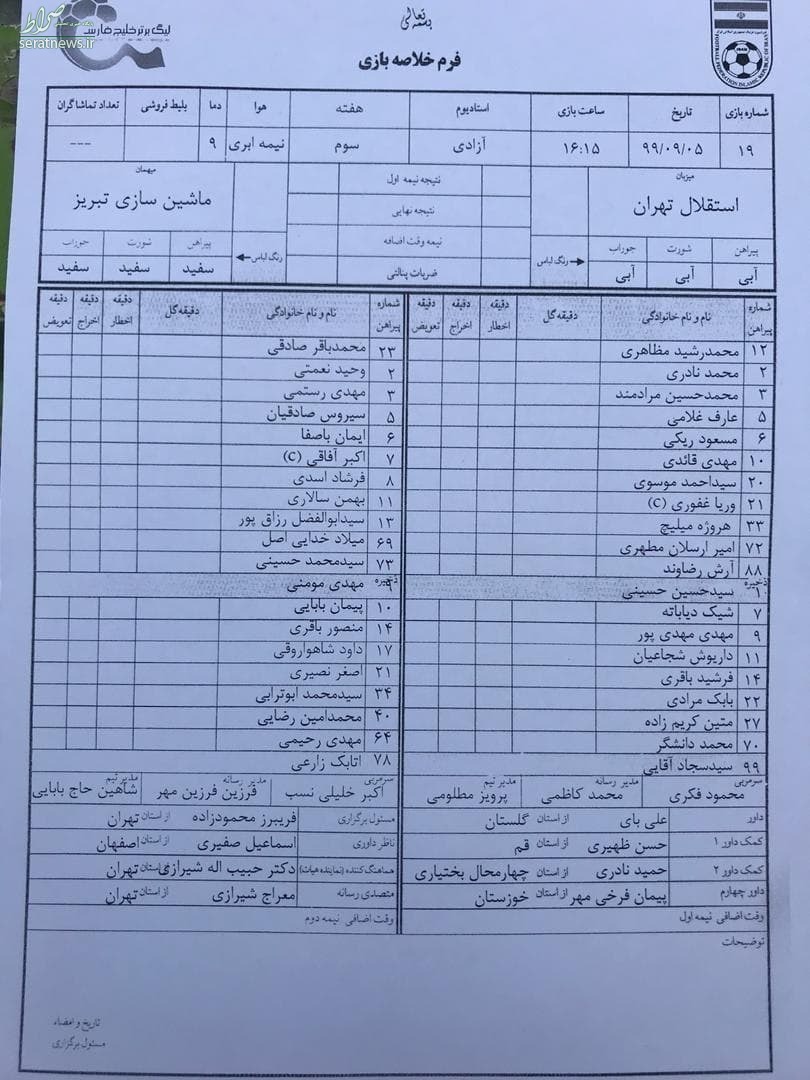 صراط
seratnews.ir
لیگ برتر خلیج فارس
بسمه تعالی
FOOTBALL FEDERATION ISLAMIC REPUBLIC OF IRAN
فرم خلاصه بازی
شماره بازی تاریخ ساعت بازی استادیوم هفته هوا دما بلیط فروشی تعداد تماشاگران
۱۹ ۹۹/۰۹/۰۵ ۱۶:۱۵ آزادی سوم نیمه ابری ۹ ---
میزبان نتیجه نیمه اول میهمان
استقلال تهران نتیجه نهایی ماشین سازی تبریز
پیراهن شورت جوراب رنگ لباس نیمه وقت اضافه رنگ لباس پیراهن شورت جوراب
آبی آبی آبی ضربات پنالتی سفید سفید سفید
شماره پیراهن نام و نام خانوادگی دقیقه گل دقیقه اخطار دقیقه اخراج دقیقه تعویض شماره پیراهن نام و نام خانوادگی دقیقه گل دقیقه اخطار دقیقه اخراج دقیقه تعویض
۱۲ محمدرشید مظاهری ۲۳ محمدباقر صادقی
۲ محمد نادری ۲ وحید نعمتی
۳ محمدحسین مرادمند ۳ مهدی رستمی
۵ عارف غلامی ۵ سیروس صادقیان
۶ مسعود ریگی ۶ ایمان باصفا
۱۰ مهدی قائدی ۷ اکبر آفاقی (C)
۲۰ سیداحمد موسوی ۸ فرشاد اسدی
۲۱ وریا غفوری (C) ۱۱ بهمن سالاری
۳۳ هروژه میلیچ ۱۳ سیدابوالفضل رزاق پور
۷۲ امیر ارسلان مطهری ۶۹ میلاد خدایی اصل
۸۸ آرش رضاوند ۷۳ سیدمحمد حسینی
ذخیره ۱ سیدحسین حسینی ذخیره ۹ مهدی مومنی
۷ شیک دیاباته ۱۰ پیمان بابایی
۹ مهدی مهدی پور ۱۴ منصور باقری
۱۱ داریوش شجاعیان ۱۷ داود شاهواروقی
۱۴ فرشید باقری ۲۱ اصغر نصیری
۲۲ بابک مرادی ۳۴ سیدمحمد ابوترابی
۲۷ متین کریم زاده ۴۰ محمدامین رضایی
۷۰ محمد دانشگر ۶۴ مهدی رحیمی
۹۹ سیدسجاد آقایی ۷۸ اتابک زارعی
سرمربی محمود فکری مدیر رسانه محمد کاظمی مدیر تیم پرویز مظلومی سرمربی اکبر خلیلی نسب مدیر رسانه فرزین فرزین مهر مدیر تیم شاهین حاج بابایی
داور علی بای از استان گلستان مسئول برگزاری فریبرز محمودزاده از استان تهران
کمک داور ۱ حسن ظهیری از استان قم ناظر داوری اسماعیل صفیری از استان اصفهان
کمک داور ۲ حمید نادری از استان چهارمحال بختیاری هماهنگ کننده (نماینده هیات) دکتر حبیب اله شیرازی از استان تهران
داور چهارم پیمان فرخی مهر از استان خوزستان متصدی رسانه معراج شیرازی از استان تهران
وقت اضافی نیمه اول وقت اضافی نیمه دوم
توضیحات
تاریخ و امضاء
مسئول برگزاری